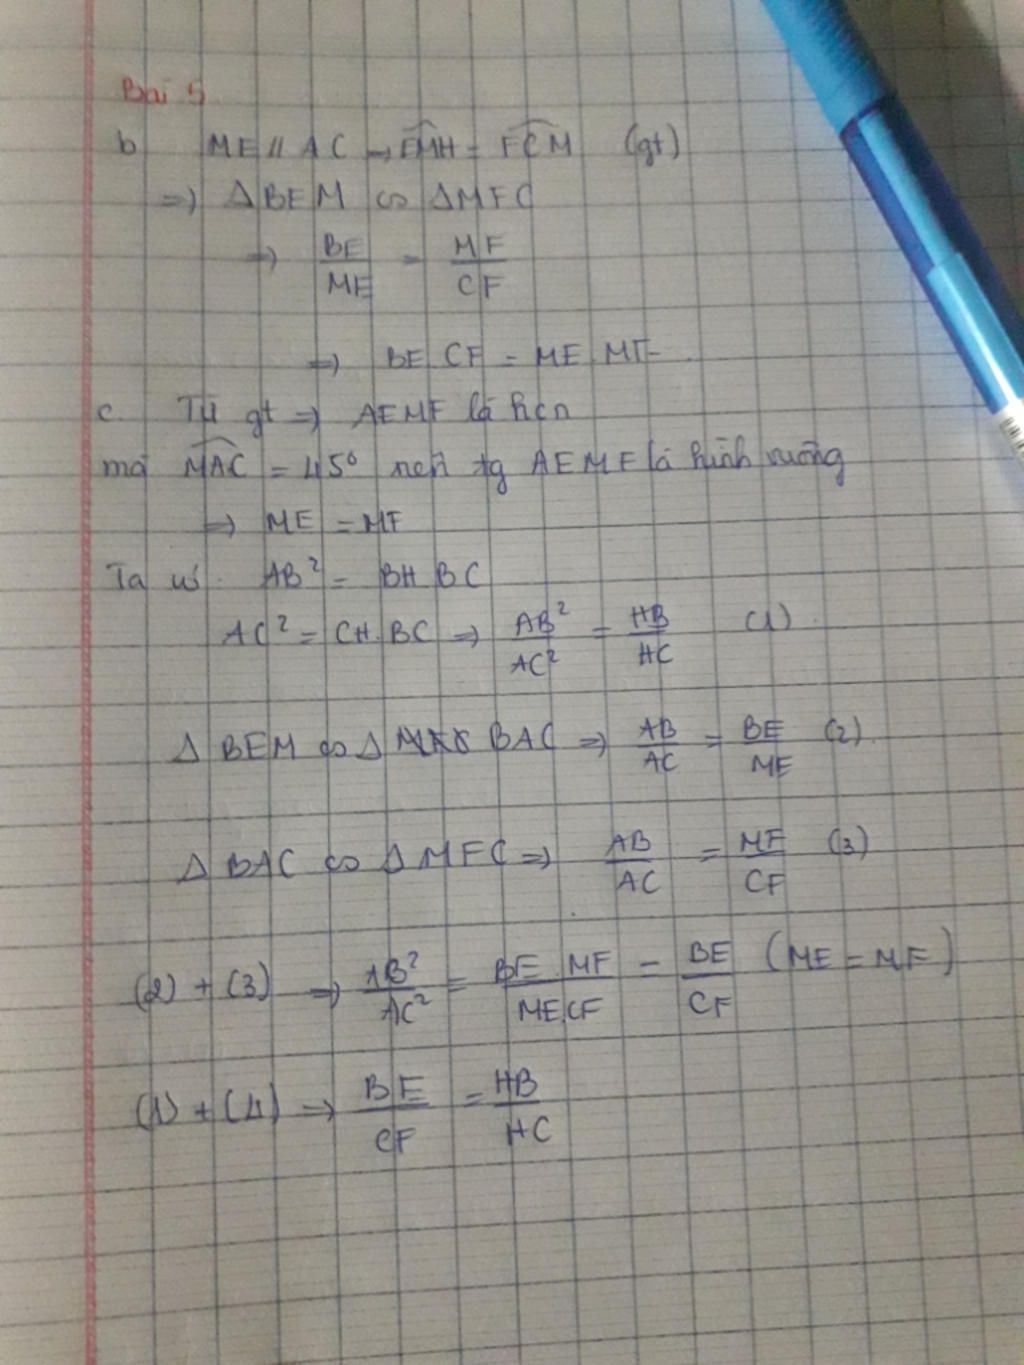 Bài 5
b ME // AC → EMH = FCM (gt)
=> Δ BEM ∽ Δ MFC
=> BE/ME = MF/CF
=> BE. CF = ME. MF
c. Từ gt => AEMF là hcn
mà MAC = 45° nên tg AEMF là hình vuông
=> ME = MF
Ta có: AB² = BH. BC
AC² = CH. BC => AB²/AC² = HB/HC (1)
Δ BEM ∽ Δ BAC => AB/AC = BE/ME (2)
Δ BAC ∽ Δ MFC => AB/AC = MF/CF (3)
(2) + (3) => AB²/AC² = BE. MF/ME.CF = BE/CF (ME = MF)
(1) + (4) => BE/CF = HB/HC